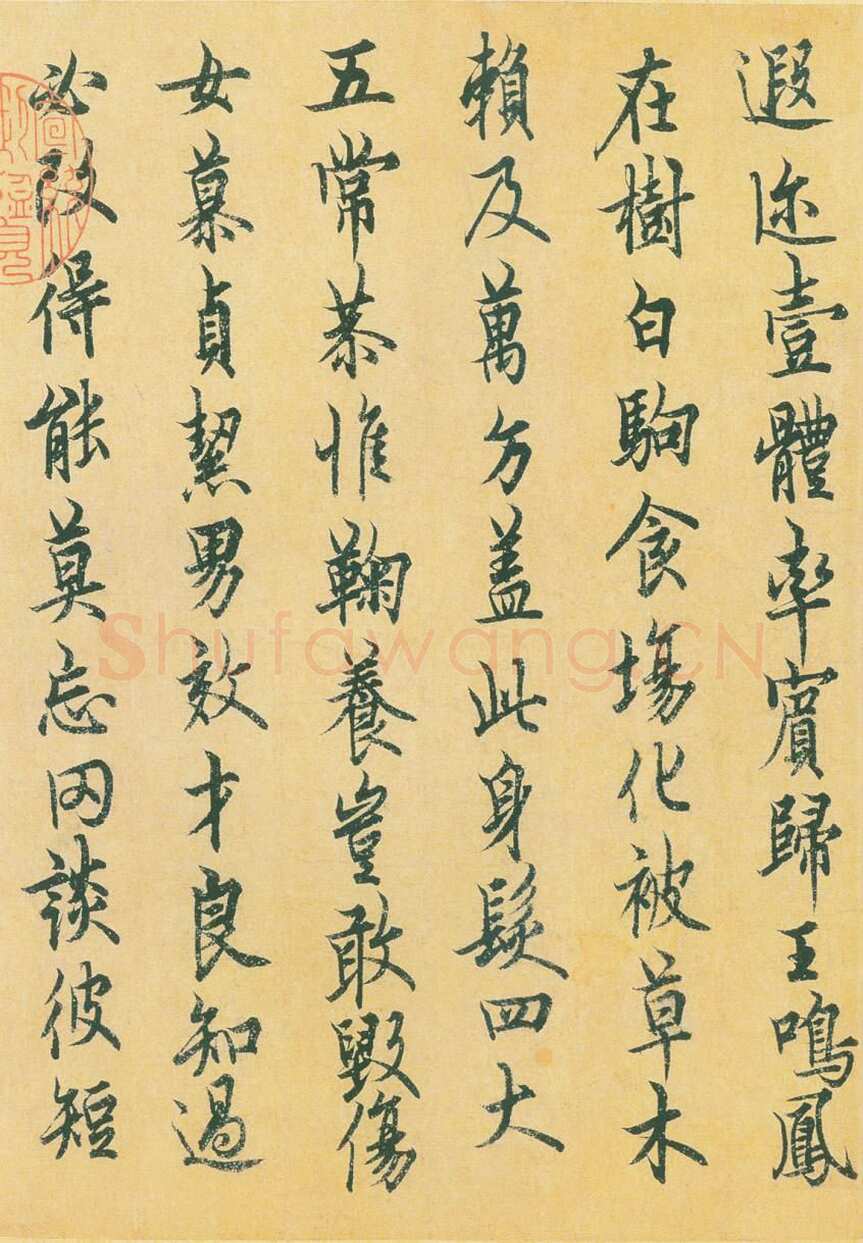 遐迩壹體率賓歸王鳴鳳
在樹白駒食場化被草木
賴及萬方盖此身髮四大
五常恭惟鞠養豈敢毀傷
女慕貞絜男效才良知過
必改得能莫忘罔談彼短
Shufawang.CN